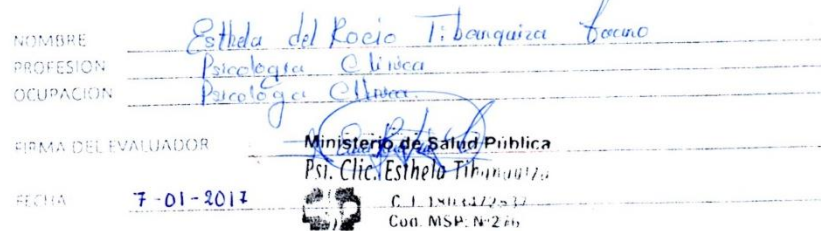 NOMBRE Esthela del Rocio Tibanquiza
PROFESION Psicologia Clinica
OCUPACION Psicologa Clinica.
FIRMA DEL EVALUADOR
Ministerio de Salud Pública
Psi. Clic. Esthela Tibanquiza
FECHA 7-01-2017
C. I.
Cod. MSP: Nº